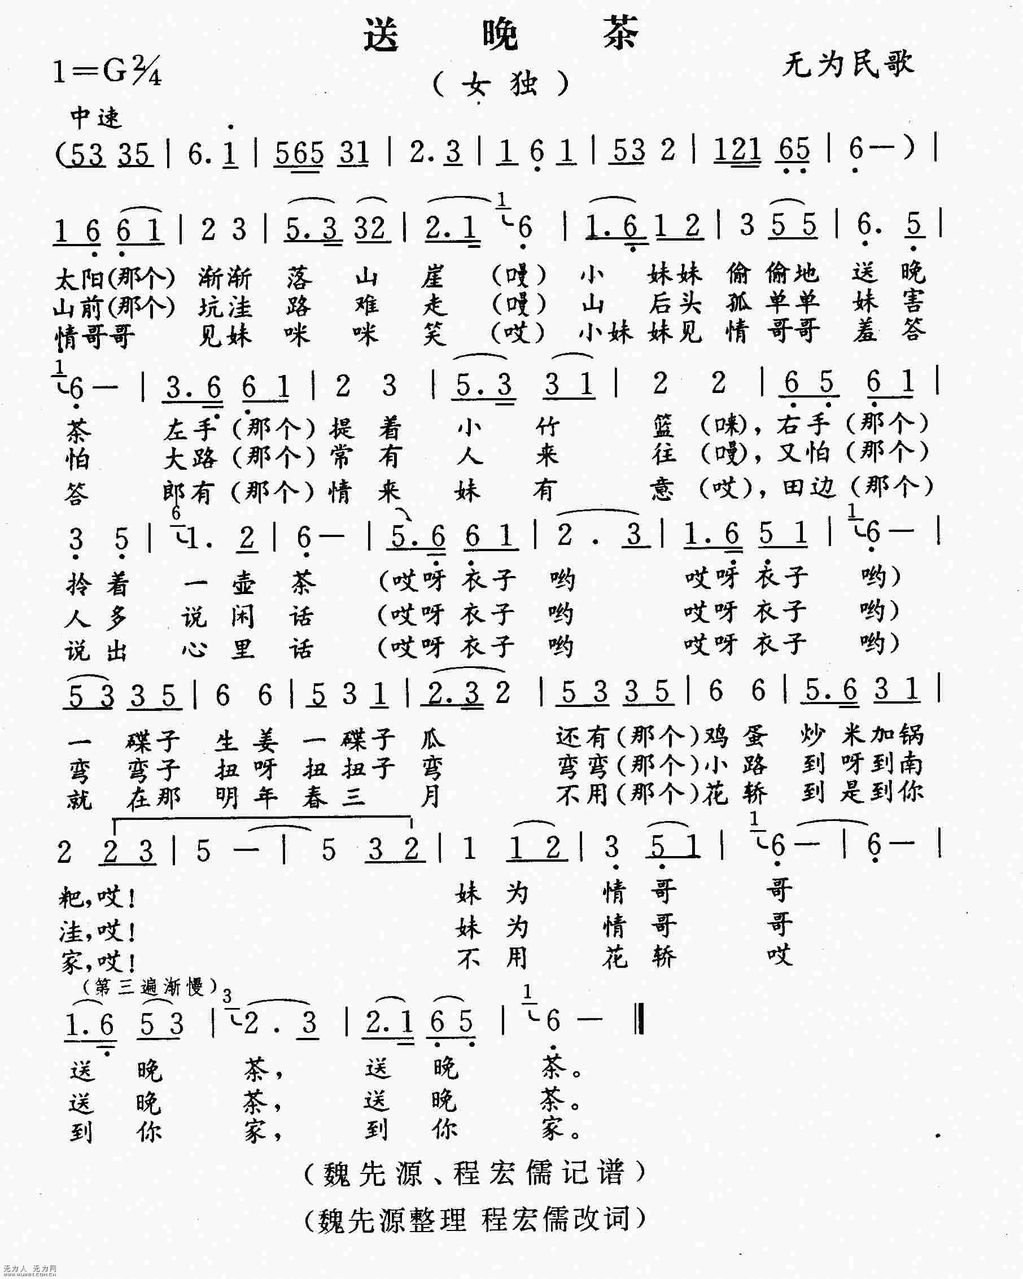 送 晚 茶
1=G2/4
(女独)
无为民歌
中速
(53 35 | 6.1 | 565 31 | 2.3 | 1 6 1 | 53 2 | 121 65 | 6 — ) |
1 6 6 1 | 2 3 | 5.3 32 | 2.1 1 6 | 1.6 12 | 3 5 5 | 6. 5 |
太阳(那个) 渐渐 落 山 崖 (嗄) 小 妹妹 偷偷地 送 晚
山前(那个) 坑洼 路 难 走 (嗄) 山 后头 孤单单 妹 害
情哥哥 见妹 咪 咪 笑 (哎) 小妹 妹见 情哥哥 羞 答
1 6 — | 3.6 6 1 | 2 3 | 5.3 3 1 | 2 2 | 6 5 6 1 |
茶 左手(那个) 提着 小 竹 篮 (唻), 右手(那个)
怕 大路(那个) 常有 人 来 往 (嗄), 又怕(那个)
答 郎有(那个) 情来 妹 有 意 (哎), 田边(那个)
3 5 | 6 1. 2 | 6 — | 5.6 6 1 | 2 . 3 | 1.6 5 1 | 1 6 — |
拎着 一壶 茶 (哎呀衣子 哟 哎呀衣子 哟)
人多 说闲 话 (哎呀衣子 哟 哎呀衣子 哟)
说出 心里 话 (哎呀衣子 哟 哎呀衣子 哟)
5 3 3 5 | 6 6 | 5 3 1 | 2.3 2 | 5 3 3 5 | 6 6 | 5.6 3 1 |
一 碟子 生姜 一碟子 瓜 还有(那个)鸡蛋 炒 米加锅
弯 弯子 扭呀 扭扭子 弯 弯弯(那个)小路 到 呀到南
就 在那 明年 春三 月 不用(那个)花轿 到 是到你
2 2 3 | 5 — | 5 3 2 | 1 1 2 | 3 5 1 | 1 6 — | 6 — |
粑,哎! 妹为 情哥 哥
洼,哎! 妹为 情哥 哥
家,哎! 不用 花轿 哎
(第三遍渐慢)
1.6 5 3 | 3 2 . 3 | 2.1 6 5 | 1 6 — ‖
送 晚 茶, 送 晚 茶。
送 晚 茶, 送 晚 茶。
到 你 家, 到 你 家。
(魏先源、程宏儒记谱)
(魏先源整理 程宏儒改词)
无为人 无为网